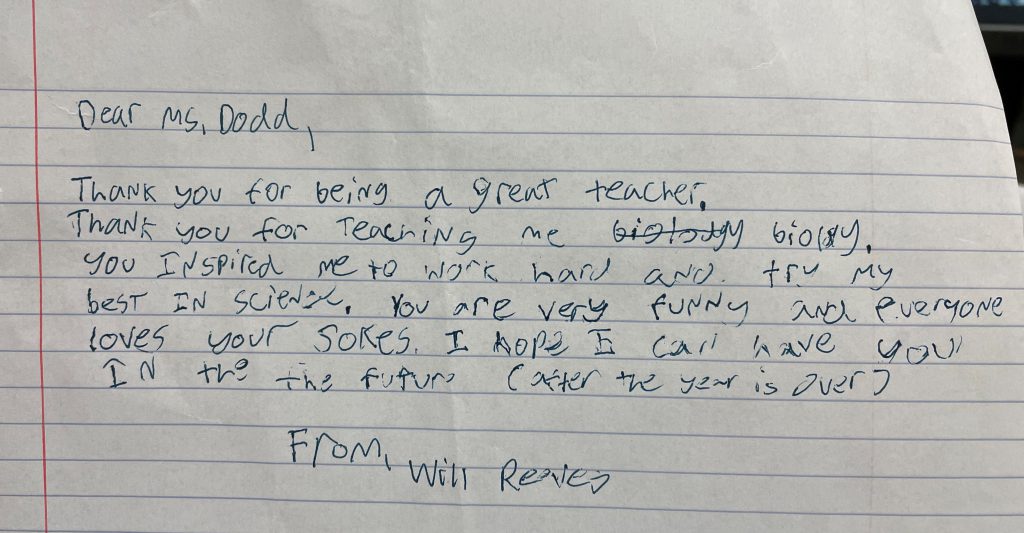 Dear Ms. Dodd,
Thank you for being a great teacher.
Thank you for Teaching me biology biology.
you INspired me to work hard and. try my
best IN science. You are very funny and everyone
loves your Jokes. I hope I can have you
IN the the future (after the year is over)
From, Will Reaves